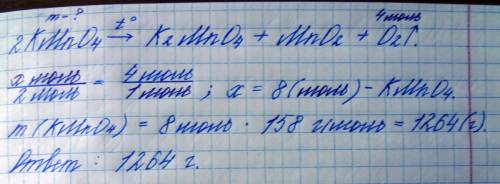 m-? 4 моль
2KMnO₄ →t° K₂MnO₄ + MnO₂ + O₂↑.
x моль / 2 моль = 4 моль / 1 моль ; x = 8 (моль) - KMnO₄.
m (KMnO₄) = 8 моль · 158 г/моль = 1264 (г).
Ответ : 1264 г.